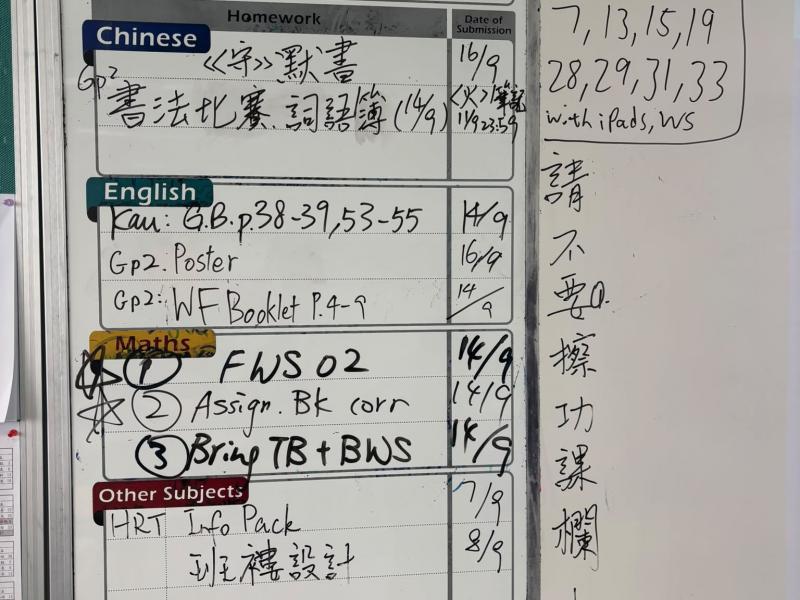 Homework
Date of Submission
Chinese
《守》默書
16/9
Gp2
書法比賽.詞語簿(14/9)
《火》筆記
11/9 23:59
English
Kau: G.B.p.38-39,53-55
14/9
Gp2. Poster
16/9
Gp2: WF Booklet P.4-9
14/9
Maths
① FWS 02
14/9
② Assign. Bk corr
14/9
③ Bring TB + BWS
14/9
Other Subjects
HRT Info Pack
7/9
班褸設計
8/9
7,13,15,19
28,29,31,33
with iPads, WS
請不要擦功課欄